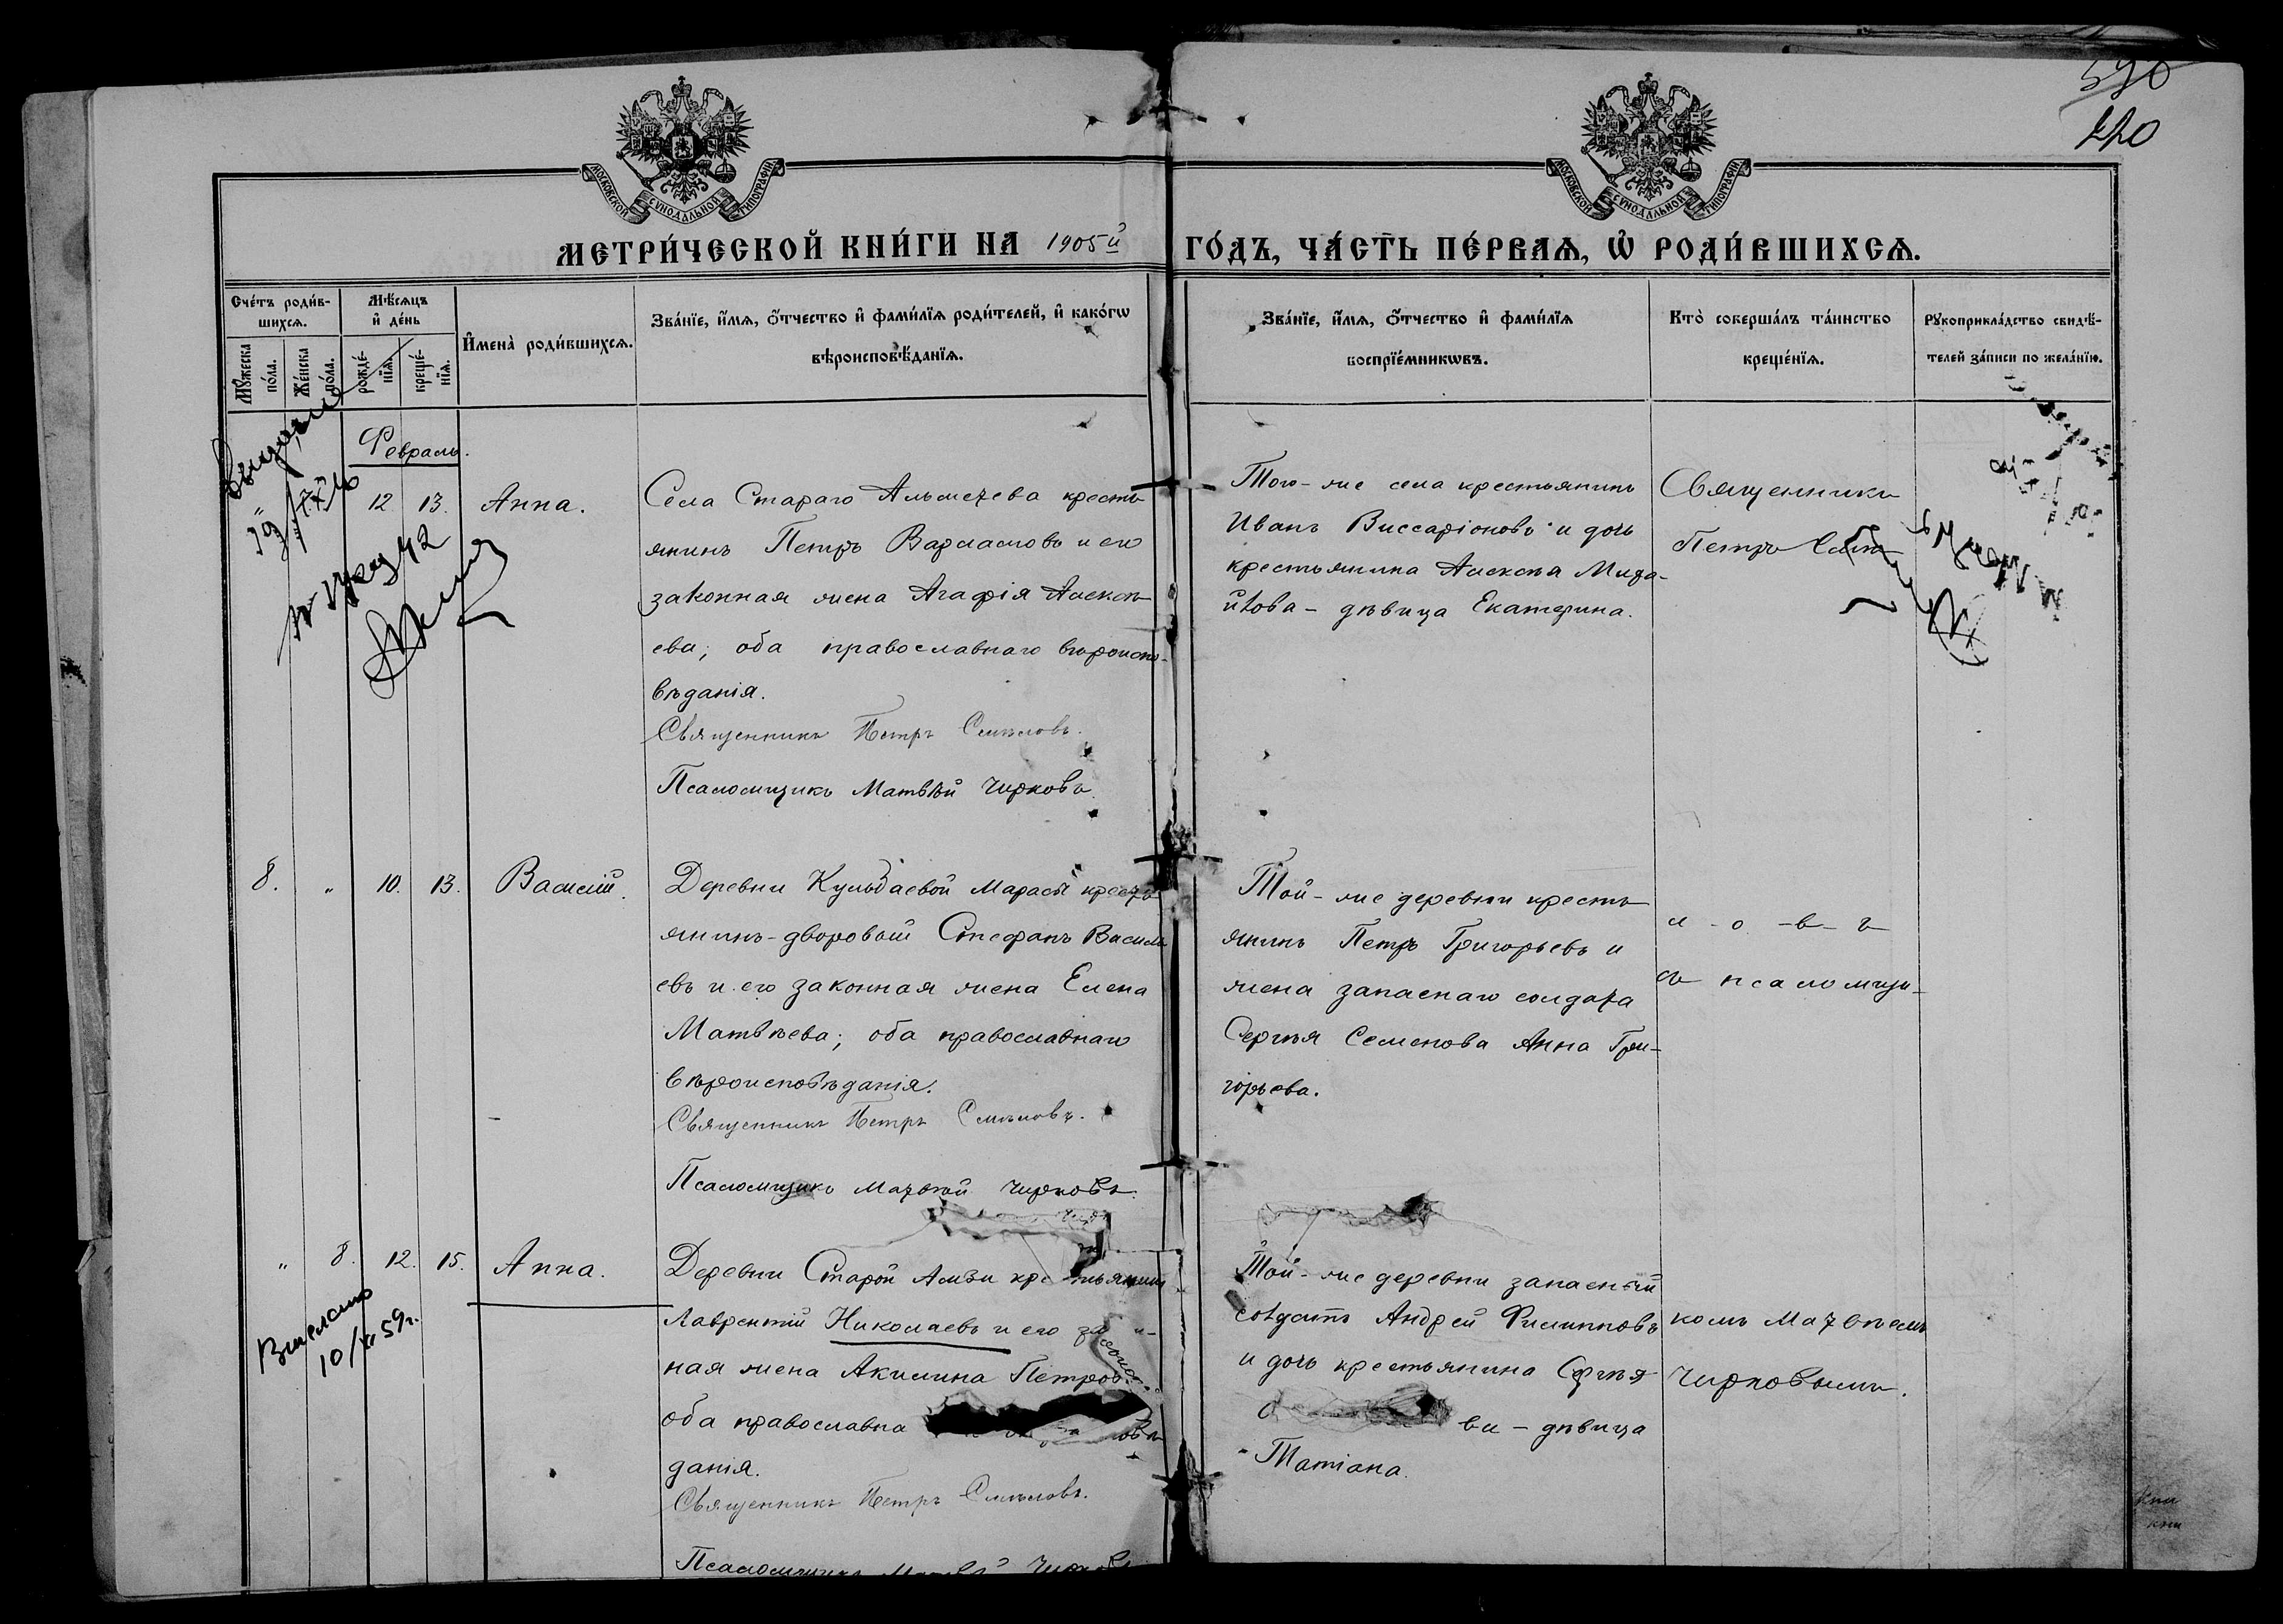 590
220
МОСКОВСКОЙ СУНОДАЛЬНОЙ ТИПОГРАФІИ
МОСКОВСКОЙ СУНОДАЛЬНОЙ ТИПОГРАФІИ
МЕТРИ́ЧЕСКОЙ КНИ́ГИ НА 1905й ГО́ДЪ, ЧА́СТЬ ПЕ́РВАЯ, Ѡ҆ РОДИ́ВШИХСѦ.
Сче́тъ роди́в-
шихсѧ.
Мꙋ́жеска по́ла.
Же́нска по́ла.
Мѣ́сѧцъ
и҆ де́нь
рожде́-
нїѧ.
креще́-
нїѧ.
И҆мена̀ роди́вшихсѧ.
Зва́нїе, и҆́мѧ, ѻ҆́тчество и҆ фами́лїѧ роди́телей, и҆ како́гѡ
вѣроисповѣ́данїѧ.
Зва́нїе, и҆́мѧ, ѻ҆́тчество и҆ фами́лїѧ
воспрїе́мникѡвъ.
Кто̀ соверша́лъ та́инство
креще́нїѧ.
Рꙋкоприкла́дство свидѣ́-
телей за́писи по жела́нїю.
Февраль.
" 12. 13. Анна.
Села Стараго Альметева кресть
янинъ Петръ Варламовъ и его
законная жена Агафія Алексѣ
ева; оба православнаго вѣроиспо-
вѣданія.
Священникъ Петръ Смѣловъ.
Псаломщикъ Матвѣй Чирковъ.
Того-же села крестьянинъ
Иванъ Виссаріоновъ и дочь
крестьянина Алексѣя
дѣвица Екатерина.
Священникъ
Петръ
8. " 10. 13. Василій.
Деревни Кульбаевой Марасы кресть
янинъ-дворовый Стефанъ Василь
евъ и его законная жена Елена
Матвѣева; оба православнаго
вѣроисповѣданія.
Священникъ Петръ Смѣловъ.
Псаломщикъ Матвѣй Чирковъ.
Той-же деревни кресть
янинъ Петръ Григорьевъ и
жена запаснаго солдата
Сергѣя Семенова Анна Гри-
горьева.
л-о-в-ъ
съ псаломщи-
" 8. 12. 15. Анна.
Внесено
10/XI 59г.
Деревни Старой Амзи крестьянинъ
Лаврентій Николаевъ и его закон-
ная жена Акилина Петрова
оба православна
данія.
Священникъ Петръ Смѣловъ.
Псаломщикъ Матвѣй Чирковъ
Той-же деревни запасный
солдатъ Андрей Филипповъ
и дочь крестьянина Сергѣя
ва - дѣвица
Татіана.
комъ Матвѣемъ
Чирковымъ.